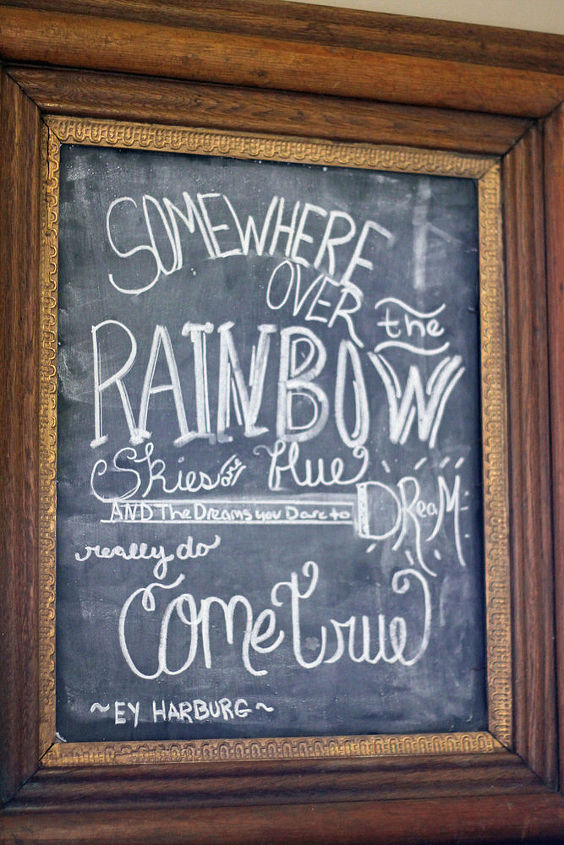 SOMEWHERE
OVER the
RAINBOW
Skies are blue
AND The Dreams you Dare to DReaM
really do
Come true
~EY HARBURG~